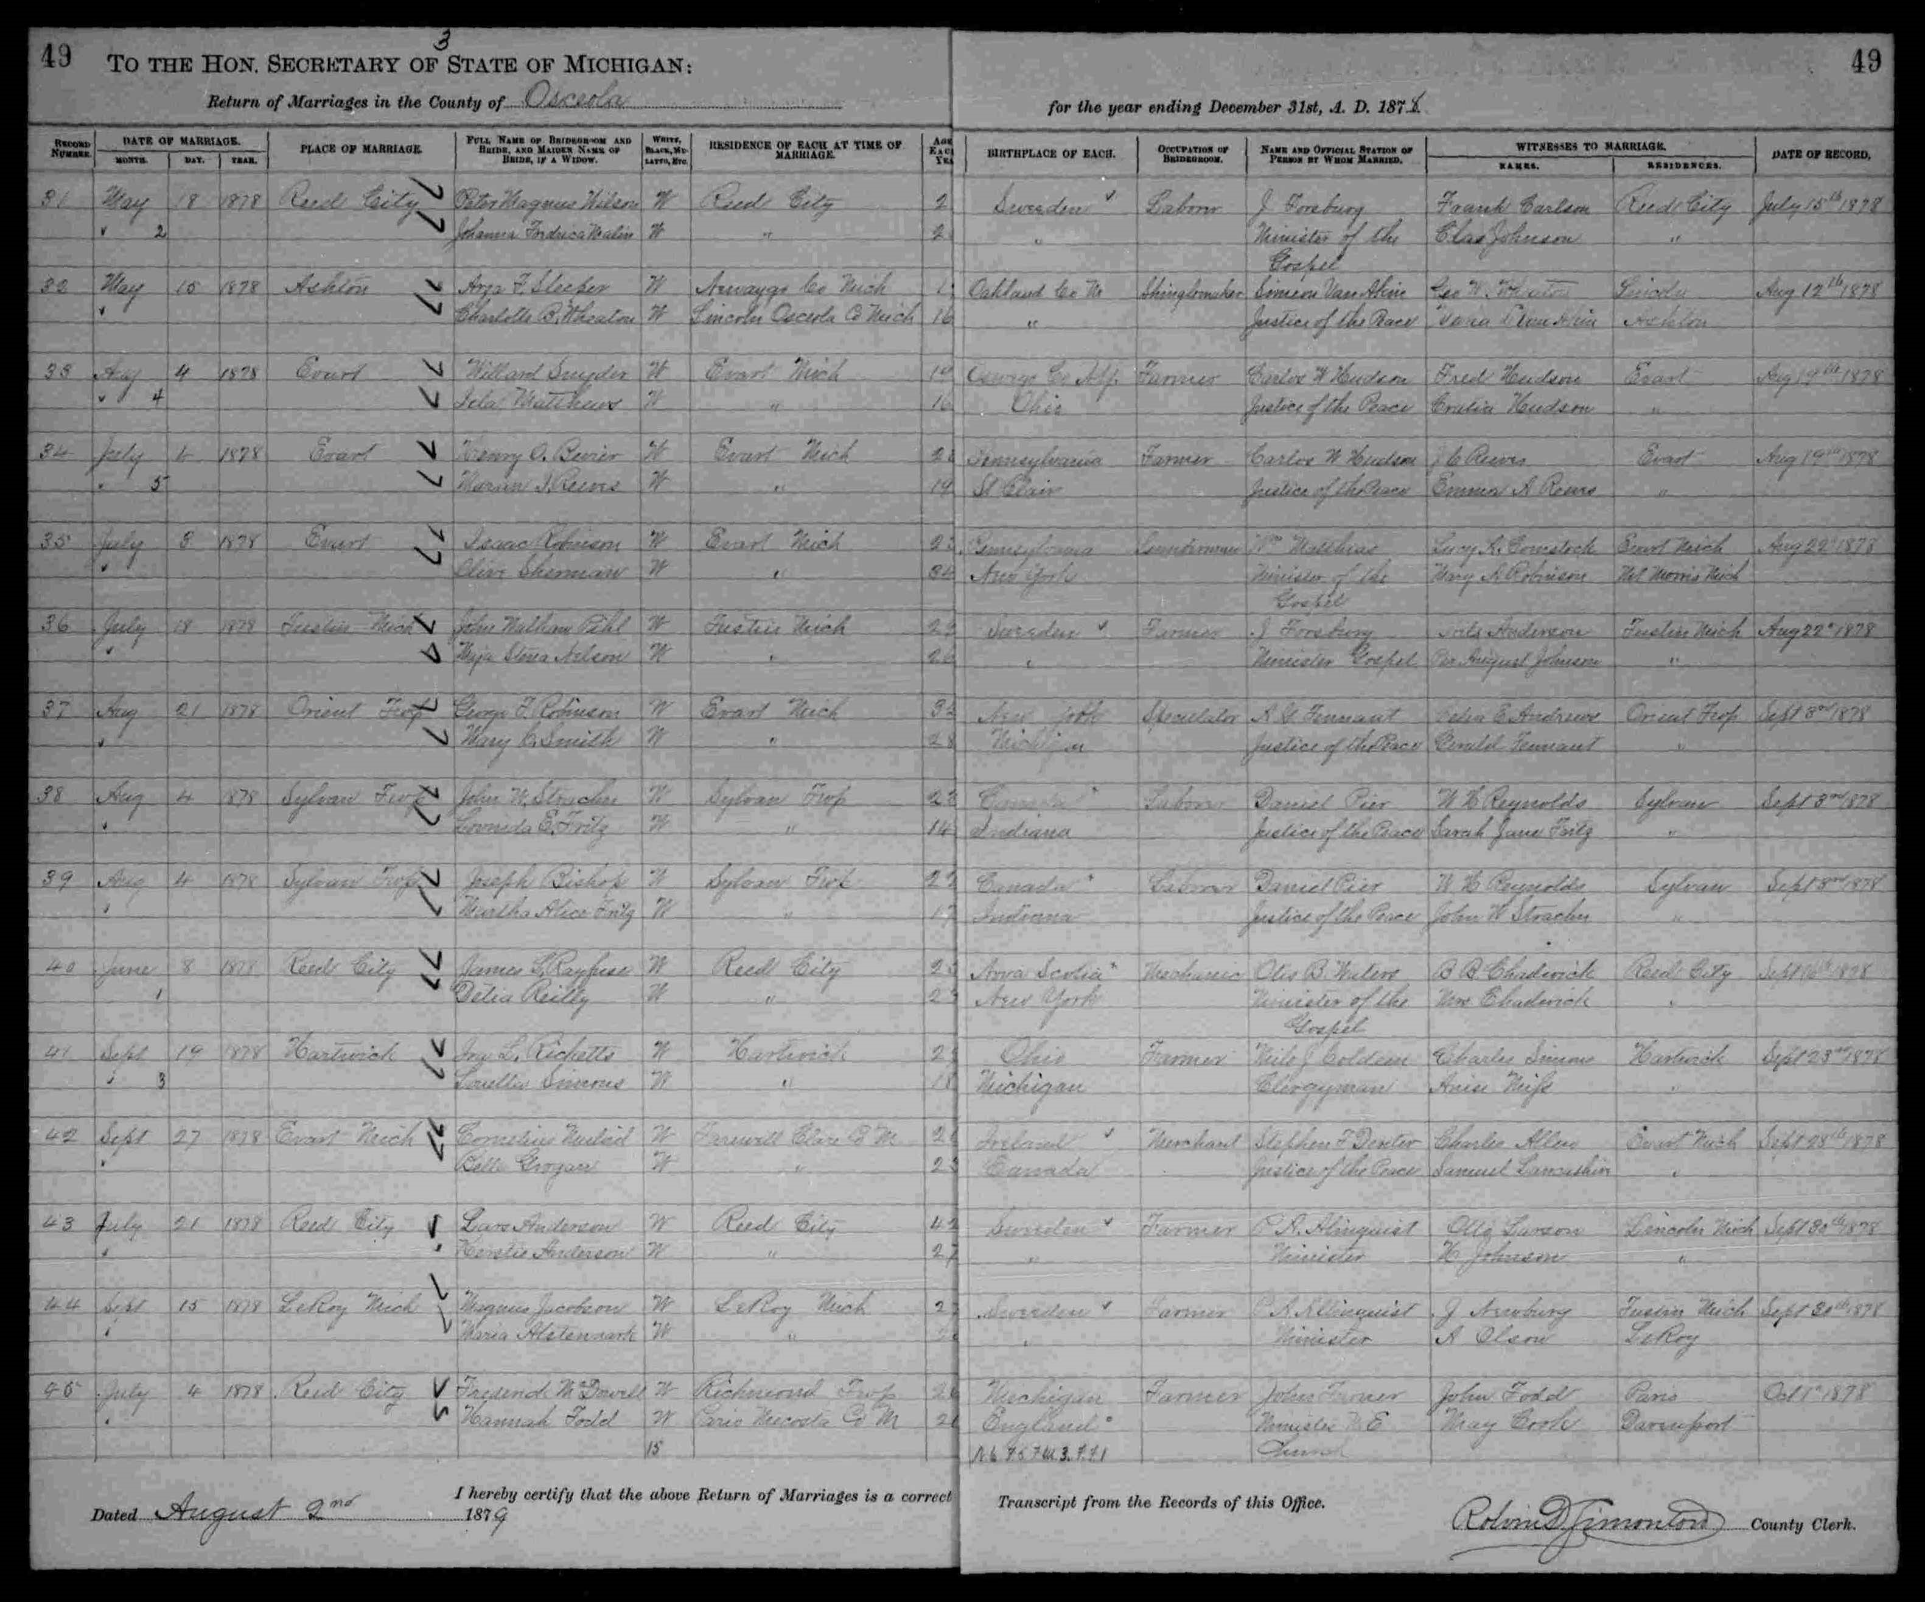 49
3
TO THE HON. SECRETARY OF STATE OF MICHIGAN:
49
Return of Marriages in the County of Osceola for the year ending December 31st, A. D. 1878.
RECORD NUMBER. DATE OF MARRIAGE. MONTH. DAY. YEAR. PLACE OF MARRIAGE. FULL NAME OF BRIDEGROOM AND BRIDE, AND MAIDEN NAME OF BRIDE, IF A WIDOW. WHITE, BLACK, MULATTO, ETC. RESIDENCE OF EACH AT TIME OF MARRIAGE. BIRTHPLACE OF EACH. OCCUPATION OF BRIDEGROOM. NAME AND OFFICIAL STATION OF PERSON BY WHOM MARRIED. WITNESSES TO MARRIAGE. NAMES. RESIDENCES. DATE OF RECORD.
31 May 18 1878 Reed City Peter Magnus Nilson W Reed City 2 Sweden Labour J Forsburg Frank Carlson Reed City July 15th 1878
" 2 Johanna Malin W " 2 " Minister of the Clas Johnson "
Gospel
32 May 15 1878 Ashton Asa F. Sleeper W Newaygo Co Mich Oakland Co M Shinglemaker Simeon Van Akin Geo W. Lincoln Aug 12th 1878
" Charlotte B. Wheaton W Lincoln Osceola Co Mich 16 " Justice of the Peace Van Akin Ashton
33 Aug 4 1878 Evart Willard Snyder W Evart Mich 19 Oswego Co N.Y. Farmer Carlos W Hudson Fred Hudson Evart Aug 19th 1878
" 4 Matthews W " 16 Ohio Justice of the Peace Hudson "
34 July 4 1878 Evart Henry O. Bevier W Evart Mich 2 Pennsylvania Farmer Carlos W Hudson J C Reeves Evart Aug 19th 1878
" 5 I. Reeves W " 19 St Clair Justice of the Peace Emma A Reeves "
35 July 3 1878 Evart Isaac Robinson W Evart Mich 2 Pennsylvania Lumberman Wm Matthias Lucy A. Comstock Evart Mich Aug 22d 1878
" Olive Sherman W " 34 New York Minister of the Mary A Robinson Mt Morris Mich
Gospel
36 July 18 1878 Tustin Mich John Pihl W Tustin Mich 23 Sweden Farmer J Forsburg Nils Anderson Tustin Mich Aug 22d 1878
" Maja Stina Nelson W " 26 " Minister Gospel Per August Johnson "
37 Aug 21 1878 Orient Twp George F. Robinson W Evart Mich 3 New York Speculator A G Tennant Delia E Andrews Orient Twp Sept 3rd 1878
" Mary C. Smith W " 28 Michigan Justice of the Peace Gerald Tennant "
38 Aug 4 1878 Sylvan Twp John W. Strachn W Sylvan Twp 23 Canada Laborer Daniel Pier W H Reynolds Sylvan Sept 3rd 1878
" E. Fritz W " 14 Indiana Justice of the Peace Sarah Jane Fritz "
39 Aug 4 1878 Sylvan Twp Joseph Bishop W Sylvan Twp 22 Canada Laborer Daniel Pier W H Reynolds Sylvan Sept 3rd 1878
" Martha Alice Fritz W " 17 Indiana Justice of the Peace John W Strachn "
40 June 8 1878 Reed City James S. Rayfuse W Reed City 23 Nova Scotia Mechanic Otis B. Waters B B Chadwick Reed City Sept 16th 1878
1 Delia Reilly W " 23 New York Minister of the Mrs Chadwick "
Gospel
41 Sept 19 1878 Hartwick Ira L. Ricketts W Hartwick 2 Ohio Farmer Milo J Coldren Charles Simons Hartwick Sept 23rd 1878
" 3 Louella Simons W " 18 Michigan Clergyman "
42 Sept 27 1878 Evart Mich Cornelius W Farwell Clare Co M 2 Ireland Merchant Stephen F Dexter Charles Allen Evart Mich Sept 28th 1878
" Belle Grogan W " 23 Canada Justice of the Peace Samuel Lancashire "
43 July 21 1878 Reed City Lars Anderson W Reed City 42 Sweden Farmer P A Almquist Otto Larson Lincoln Mich Sept 30th 1878
" Kerstie Anderson W " 27 " Minister H Johnson "
44 Sept 15 1878 LeRoy Mich Magnus Jacobson W LeRoy Mich 2 Sweden Farmer P A Almquist J Newburg Tustin Mich Sept 30th 1878
" Maria W " " Minister A Olson LeRoy
45 July 4 1878 Reed City Frederick McDowell W Richmond Twp 2 Michigan Farmer John Todd Paris Oct 1st 1878
" Hannah Todd W Paris Mecosta Co M 2 England Minister M E May Cook Davenport
15 Church
Dated August 2nd 1879 I hereby certify that the above Return of Marriages is a correct Transcript from the Records of this Office.
Simonton County Clerk.